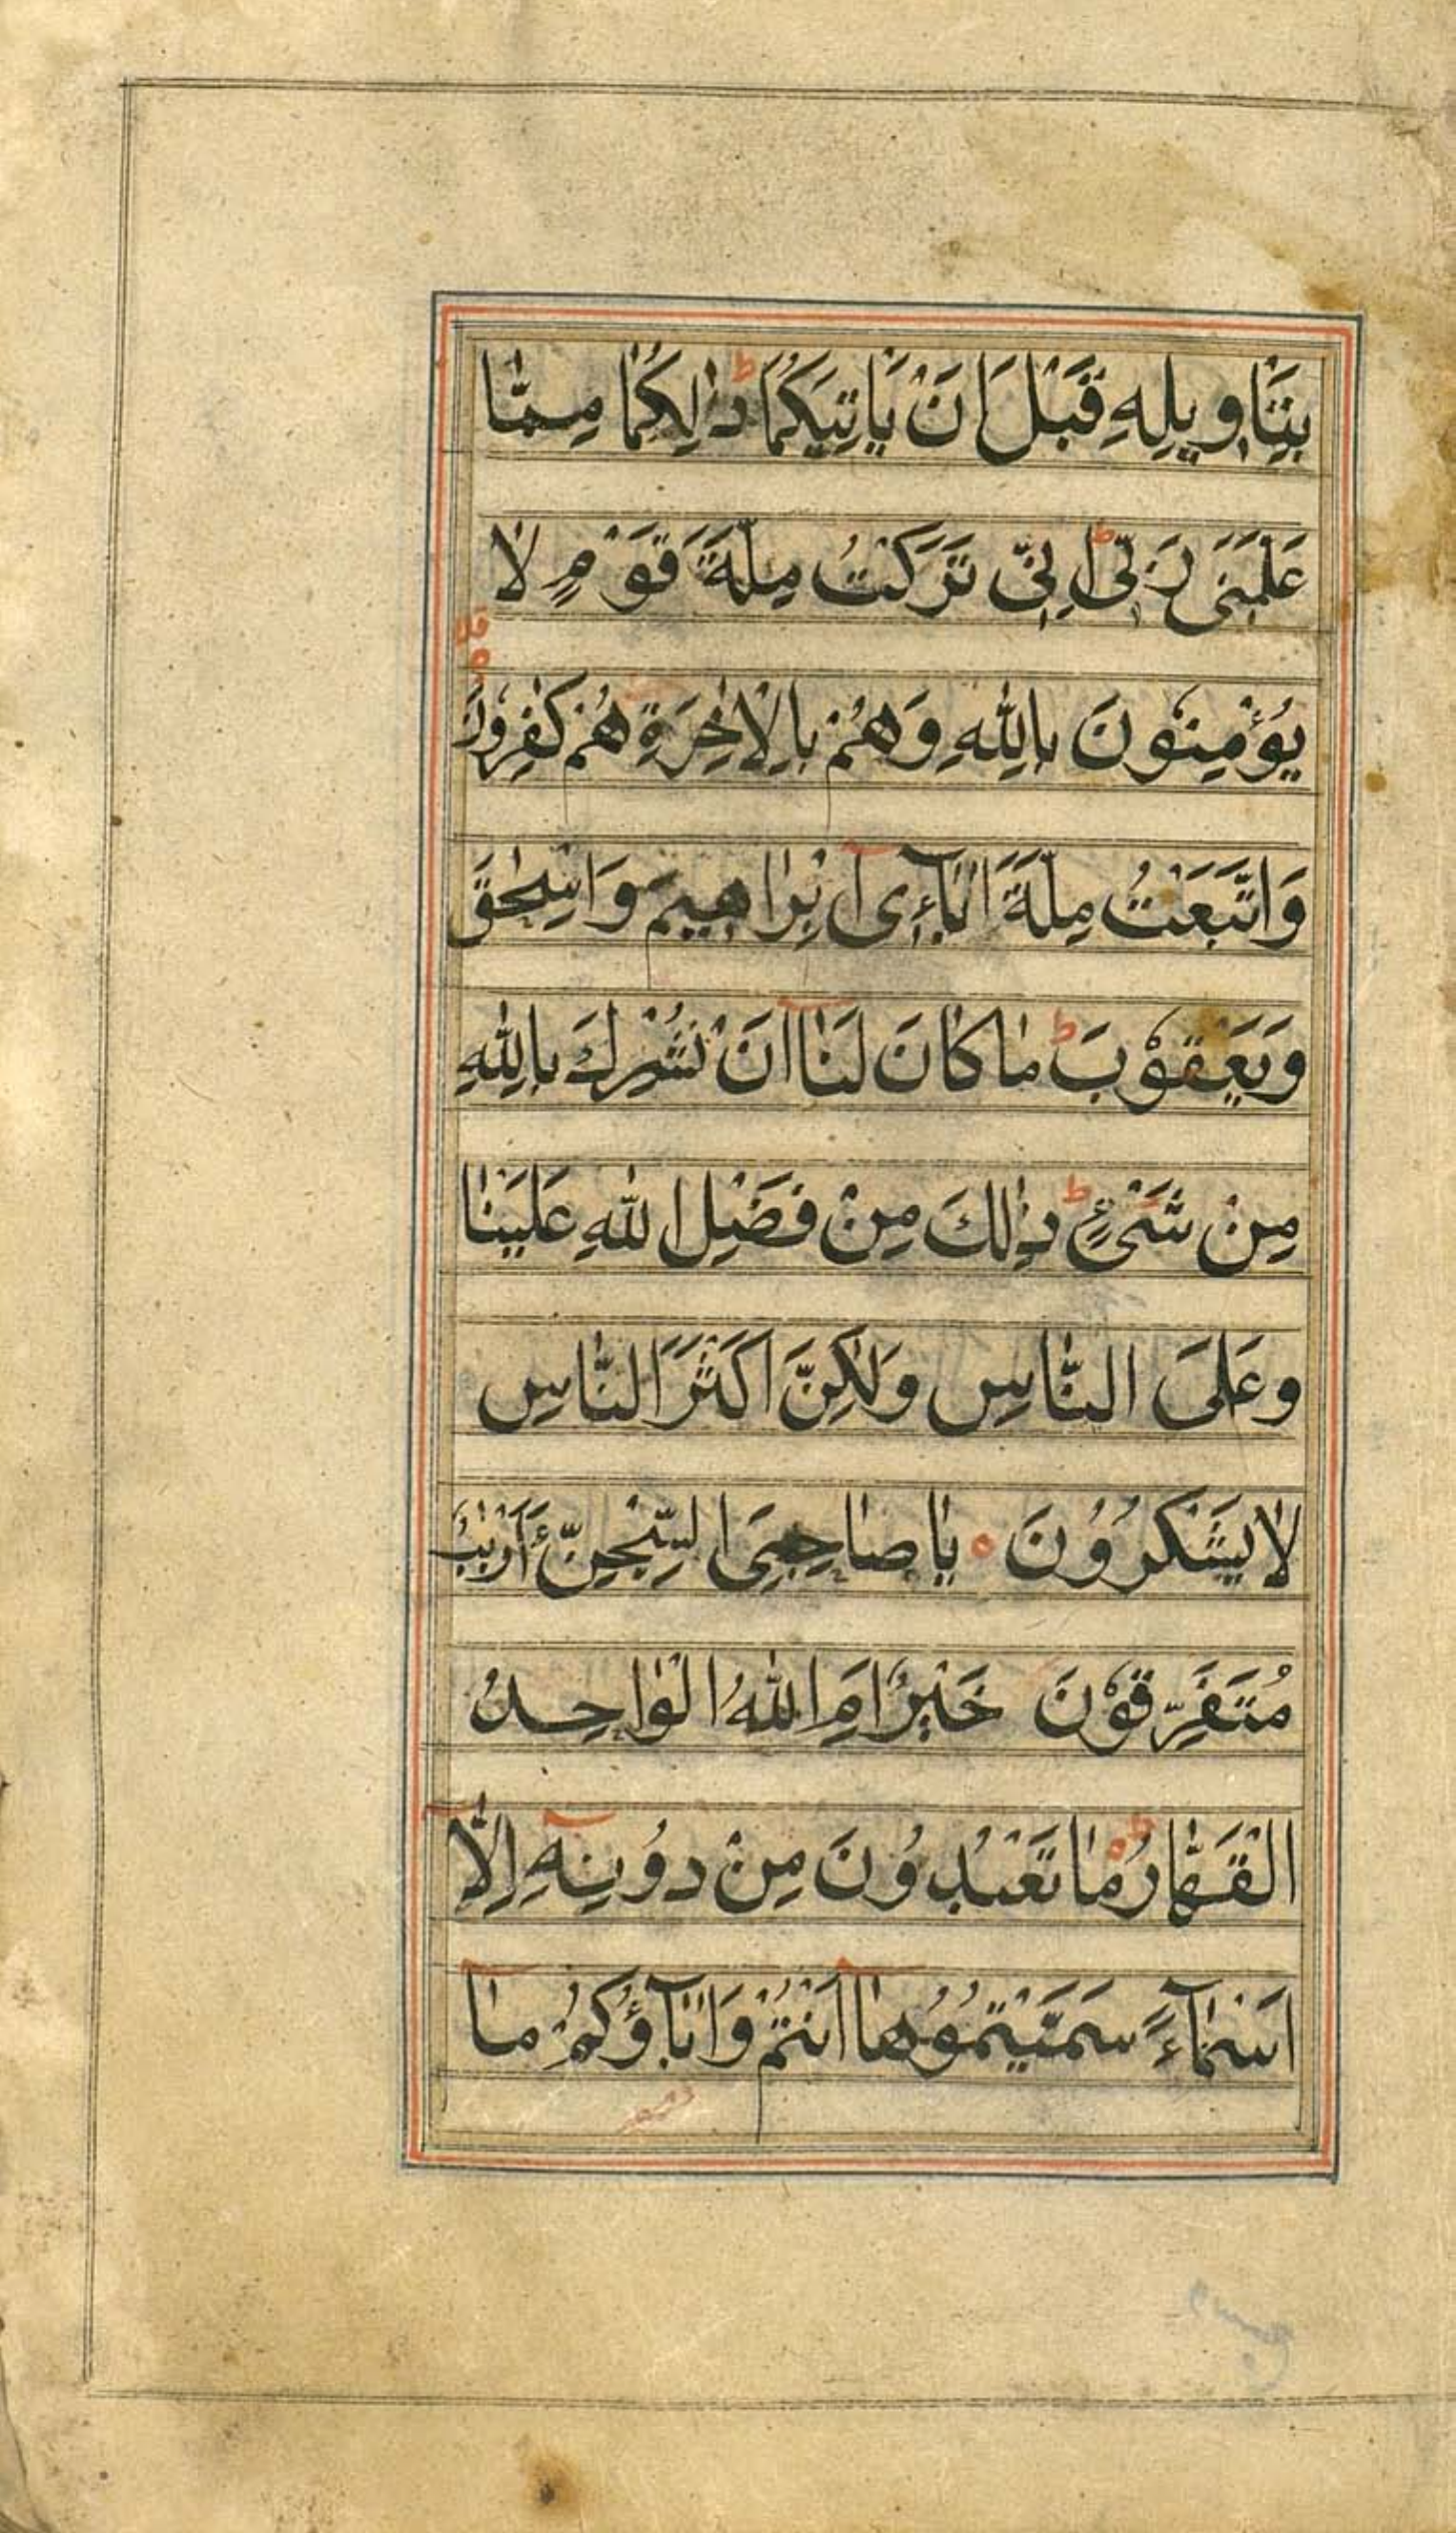 بِتَاوِيلِهِ قَبْلَ اَنْ يَاتِيَكُمَا ط ذٰلِكُمَا مِمَّا
عَلَّمَنِى رَبِّى ط اِنِّى تَرَكْتُ مِلَّةَ قَوْمٍ لَا
يُؤْمِنُوْنَ بِاللّٰهِ وَهُمْ بِالْاٰخِرَةِ هُمْ كٰفِرُوْنَ
وَاتَّبَعْتُ مِلَّةَ اٰبَآءِى اِبْرَاهِيمَ وَاِسْحٰقَ
وَيَعْقُوْبَ ط مَا كَانَ لَنَا اَنْ نُشْرِكَ بِاللّٰهِ
مِنْ شَىْءٍ ط ذٰلِكَ مِنْ فَضْلِ اللّٰهِ عَلَيْنَا
وَعَلَى النَّاسِ وَلٰكِنَّ اَكْثَرَ النَّاسِ
لَا يَشْكُرُوْنَ ه يَا صَاحِبَىِ السِّجْنِ ءَاَرْبَابٌ
مُتَفَرِّقُوْنَ خَيْرٌ اَمِ اللّٰهُ الْوَاحِدُ
الْقَهَّارُ ط مَا تَعْبُدُوْنَ مِنْ دُوْنِهِ اِلَّا
اَسْمَآءً سَمَّيْتُمُوْهَا اَنْتُمْ وَاٰبَآؤُكُمْ مَا